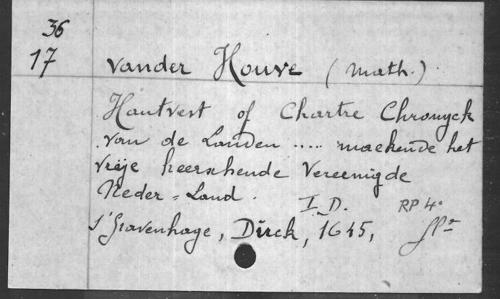 36
17 vander Houve (Math.)
Hantvest of Chartre Chronyck
van de Landen ..... maekende het
vrije heerschende Vereenigde
Neder = Land.
I D. RP 4°
s'Gravenhage, Dirck, 1645,